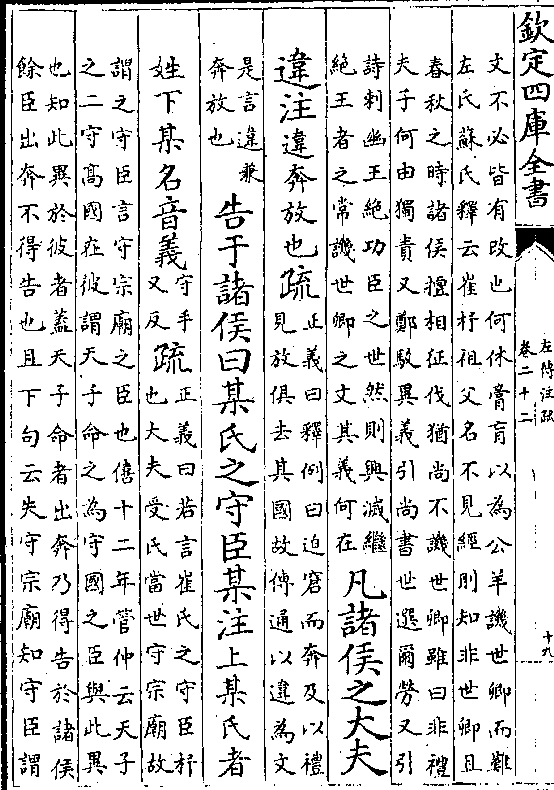 欽定四庫全書
左傳注疏
卷二十二
十九
文不必皆有改也何休膏肓以為公羊譏世卿而難
左氏蘇氏釋云崔杼祖父名不見經則知非世卿且
春秋之時諸侯擅相征伐猶尚不譏世卿雖曰非禮
夫子何由獨責又鄭駮異義引尚書世選爾勞又引
詩刺幽王絶功臣之世然則興滅繼
絶王者之常譏世卿之文其義何在
凡諸侯之大夫
違注違奔放也疏
正義曰釋例曰迫窘而奔及以禮
見放俱去其國故傳通以違為文
是言違兼
奔放也
告于諸侯曰某氏之守臣某注上某氏者
姓下某名音義
守手
又反
疏
正義曰若言崔氏之守臣杼
也大夫受氏當世守宗廟故
謂之守臣言守宗廟之臣也僖十二年管仲云天子
之二守高國在彼謂天子命之為守國之臣與此異
也知此異於彼者蓋天子命者出奔乃得告於諸侯
餘臣出奔不得告也且下句云失守宗廟知守臣謂